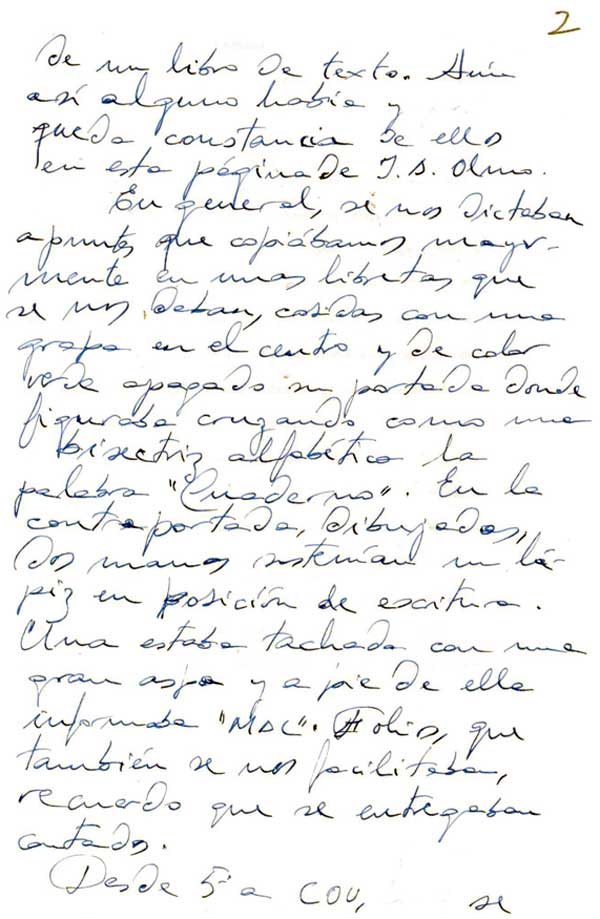 2
de un libro de texto. Aún
así alguno había y
queda constancia de ellos
en esta página de J. S. Olmo.
En general, se nos dictaban
apuntes que copiábamos mayor-
mente en unas libretas que
se nos daban, cosidas con una
grapa en el centro y de color
verde apagado su portada donde
figuraba cruzando como una
bisectriz alfabética la
palabra "Cuaderno". En la
contraportada, dibujadas,
dos manos sostenían un lá-
piz en posición de escritura.
Una estaba tachada con una
gran aspa y a pie de ella
informaba "MAL". Folios, que
también se nos facilitaban,
recuerdo que se entregaban
contados.
Desde 5º a COU, se